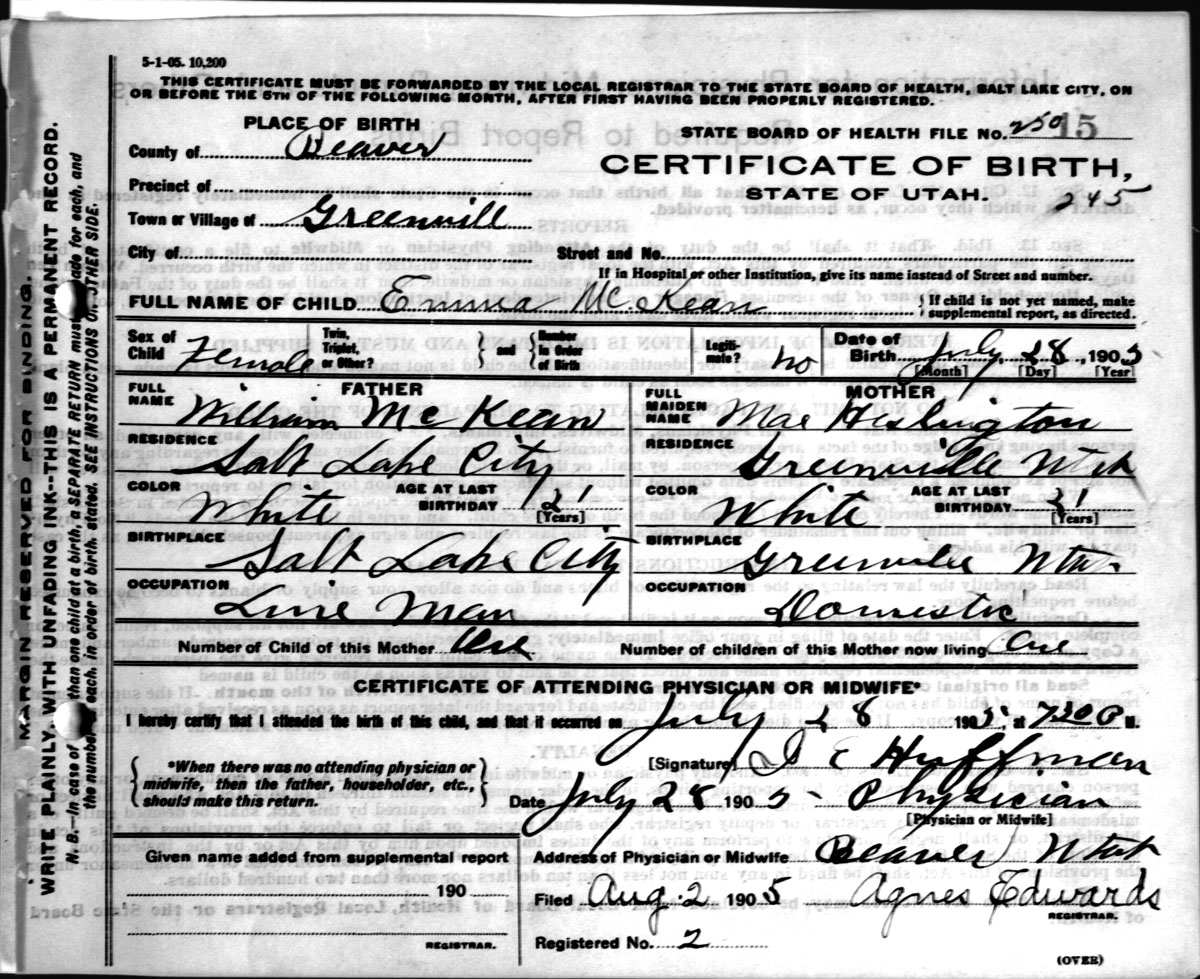 5-1-05. 10,200
THIS CERTIFICATE MUST BE FORWARDED BY THE LOCAL REGISTRAR TO THE STATE BOARD OF HEALTH, SALT LAKE CITY, ON
OR BEFORE THE 5TH OF THE FOLLOWING MONTH, AFTER FIRST HAVING BEEN PROPERLY REGISTERED.
PLACE OF BIRTH
STATE BOARD OF HEALTH FILE No. 250 15
County of Beaver
CERTIFICATE OF BIRTH,
Precinct of
STATE OF UTAH. 245
Town or Village of Greenvill
City of Street and No.
If in Hospital or other Institution, give its name instead of Street and number.
FULL NAME OF CHILD Emma McKean { If child is not yet named, make
supplemental report, as directed.
Sex of Child Female Twin, Triplet, or Other? } and { Number in Order of Birth Legiti-mate? no Date of Birth July 28, 1905
[Month] [Day] [Year]
FATHER
FULL NAME William McKean
RESIDENCE Salt Lake City
COLOR White AGE AT LAST BIRTHDAY 21 [Years]
BIRTHPLACE Salt Lake City
OCCUPATION Line Man
MOTHER
FULL MAIDEN NAME Mae
RESIDENCE Greenville Utah
COLOR White AGE AT LAST BIRTHDAY 21 [Years]
BIRTHPLACE Greenville Utah
OCCUPATION Domestic
Number of Child of this Mother Number of children of this Mother now living One
CERTIFICATE OF ATTENDING PHYSICIAN OR MIDWIFE*
I hereby certify that I attended the birth of this child, and that it occurred on July 28 1905, at 730 P M.
{ *When there was no attending physician or
midwife, then the father, householder, etc.,
should make this return. }
[Signature] Huffman
Date July 28 1905 Physician
[Physician or Midwife]
Given name added from supplemental report
190
REGISTRAR.
Address of Physician or Midwife Beaver Utah
Filed Aug. 2 1905 Agnes Edwards
REGISTRAR.
Registered No. 2
(OVER)
MARGIN RESERVED FOR BINDING.
WRITE PLAINLY, WITH UNFADING INK--THIS IS A PERMANENT RECORD.
N. B.—In case of more than one child at a birth, a SEPARATE RETURN must be made for each, and
the number of each, in order of birth, stated. SEE INSTRUCTIONS ON OTHER SIDE.